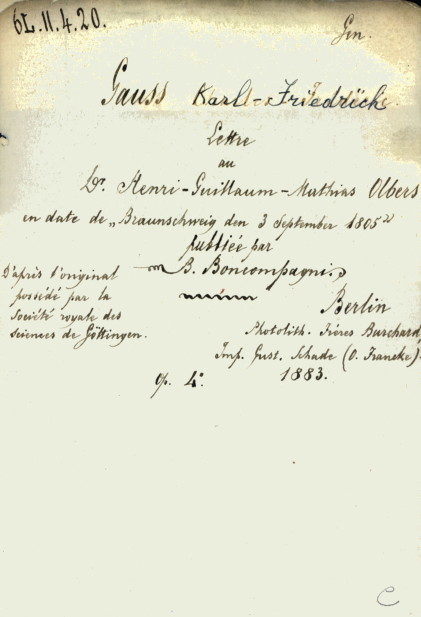 6L.11.4.20.
Gen.
Gauss Karl-Friedrich.
Lettre
au
Dr. Henri-Guillaum-Mathias Olbers
en date de „Braunschweig den 3 September 1805"
publiée par
B. Boncompagni.
D'après l'original
possédé par la
Société royale des
sciences de Göttingen.
Berlin
Photolith. Frères Burchard,
Imp. Gust. Schade (O. Francke).
1883.
4°.
C